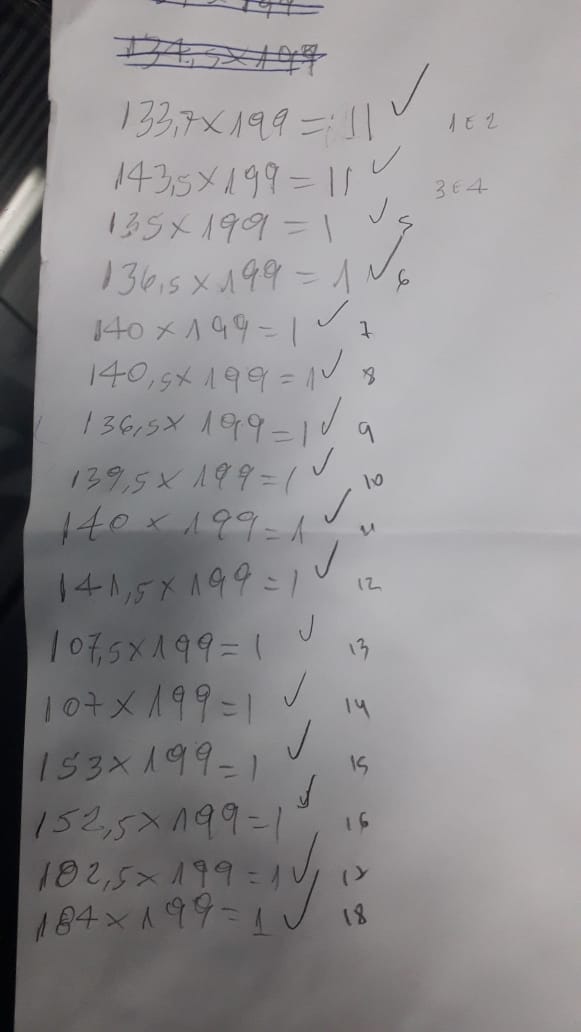 134,5×199
133,7×199 = 11 ✓ 1 E 2
143,5×199 = 11 ✓ 3 E 4
135×199 = 1 ✓ 5
136,5×199 = 1 ✓ 6
140×199 = 1 ✓ 7
140,5×199 = 1 ✓ 8
136,5×199 = 1 ✓ 9
139,5×199 = 1 ✓ 10
140×199 = 1 ✓ 11
141,5×199 = 1 ✓ 12
107,5×199 = 1 ✓ 13
107×199 = 1 ✓ 14
153×199 = 1 ✓ 15
152,5×199 = 1 ✓ 16
182,5×199 = 1 ✓ 17
184×199 = 1 ✓ 18